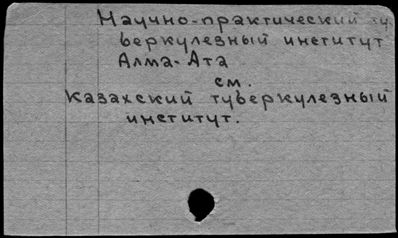 Научно-практический ту
беркулезный институт
Алма-Ата
см.
Казахский туберкулезный
институт.